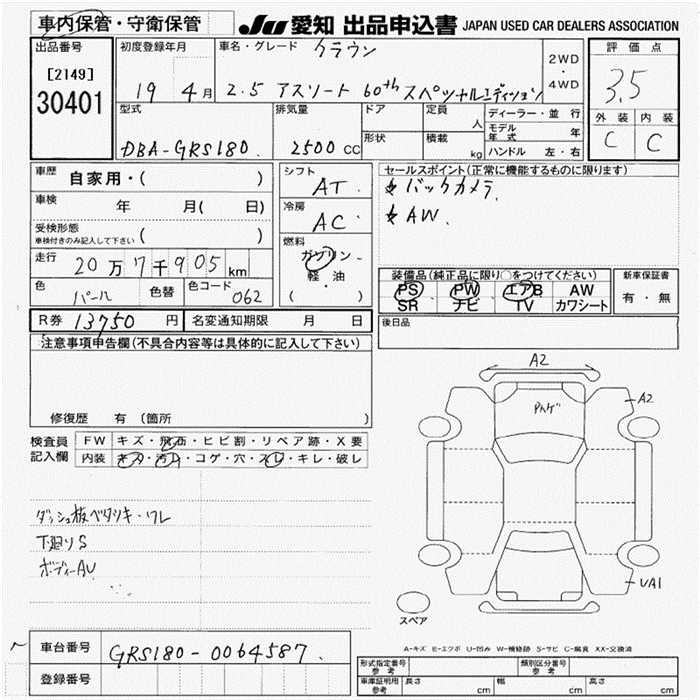 車内保管・守衛保管
JU 愛知 出品申込書 JAPAN USED CAR DEALERS ASSOCIATION
出品番号
[2149]
30401
初度登録年月
19 4月
車名・グレード クラウン
2.5 アスリート 60th スペシャルエディション
2WD
・
4WD
評価点
3.5
外装 内装
C C
型式
DBA-GRS180
排気量
2500 CC
ドア
形状
定員
人
積載
kg
ディーラー・並行
モデル年式 年
ハンドル 左・右
車歴 自家用・( )
車検 年 月( 日)
受検形態
車検付きのみ記入して下さい ( )
走行 20万7千905km
色 パール 色替 色コード 062
シフト
AT
冷房
AC
燃料
ガソリン
軽・油
( )
セールスポイント(正常に機能するものに限ります)
★バックカメラ
★AW
装備品(純正品に限り○をつけてください)
PS PW エアB AW
SR ナビ TV カワシート
新車保証書
有・無
後日品
R券 13750 円 名変通知期限 月 日
注意事項申告欄(不具合内容等は具体的に記入して下さい)
修復歴 有(箇所 )
検査員
記入欄
FW キズ・飛石・ヒビ割・リペア跡・X要
内装 キズ・汚れ・コゲ・穴・スレ・キレ・破レ
ダッシュ板ベタツキ・ワレ
下廻りS
ボディーAU
A2
A2
UA1
スペア
A-キズ E-エクボ U-凹み W-補修跡 S-サビ C-腐食 XX-交換済
車台番号 GRS180-0064587
登録番号
形式指定番号
参考
類別区分番号
参考
車庫証明用
参考
長さ cm 幅 cm 高さ cm